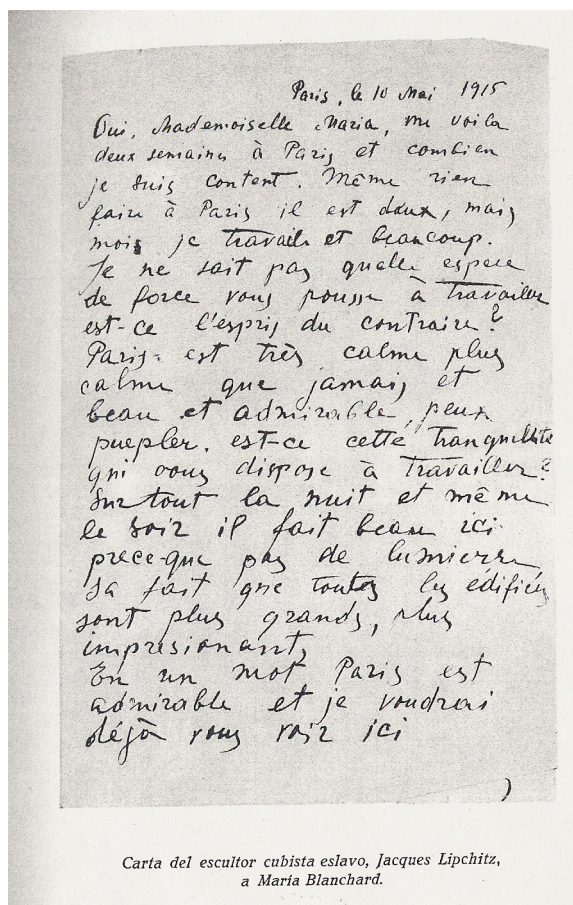 Paris, le 10 Mai 1915
Oui, Mademoiselle Maria, me voila
deux semaines à Paris et combien
je suis content. Même rien
faire à Paris il est doux, mais
mois je travaile et beaucoup.
Je ne sait pas quelle espece
de force vous pousse à travailler
est-ce l'espris du contraire?
Paris est très calme plus
calme que jamais et
beau et admirable, peux
puepler. est-ce cette tranquellité
qui vous dispose à travailler?
Surtout la nuit et même
le soir il fait beau ici
prece-que pas de lumierre
sa fait que toutes les édifices
sont plus grands, plus
impresionants
En un mot Paris est
admirable et je voudrai
déjà vous voir ici
Carta del escultor cubista eslavo, Jacques Lipchitz,
a María Blanchard.